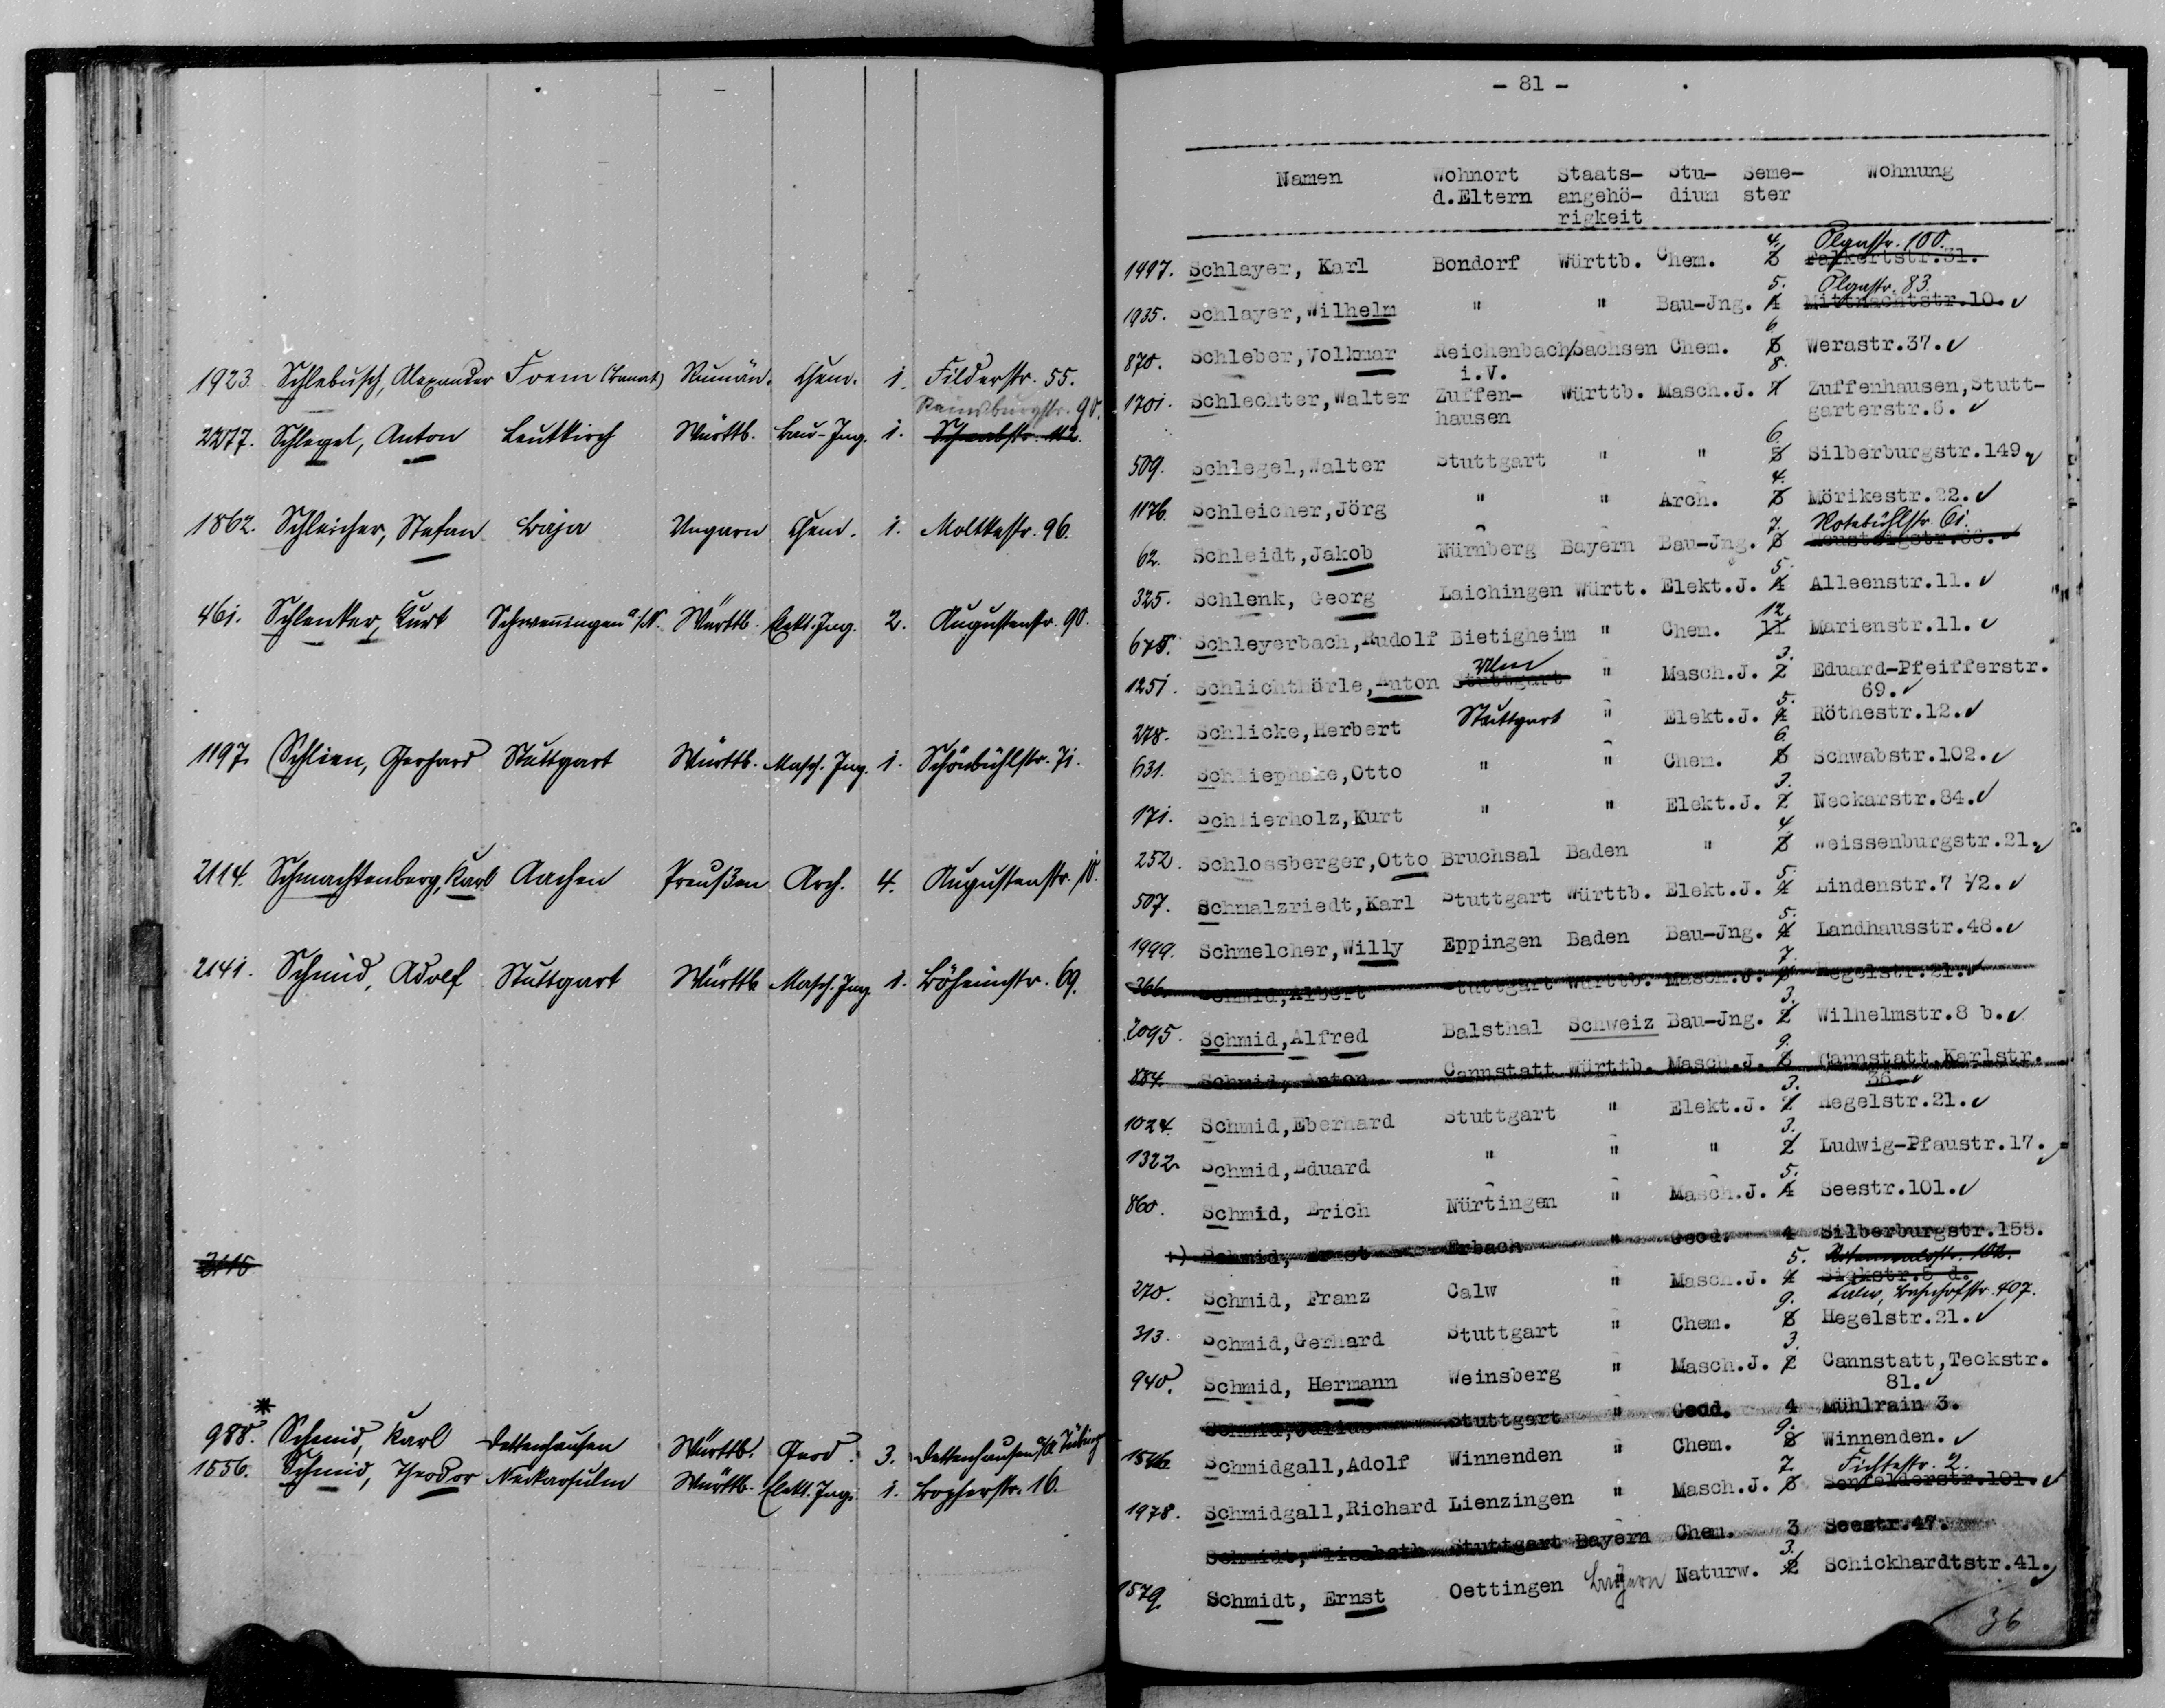 1923. Schlebusch, Alexander Foeni (Banat) Rumän. Chem. 1. Filderstr. 55.
Reinsburgstr. 90.
2277. Schlegel, Anton Leutkirch Württb. Bau-Ing. 1. Schwabstr. 112.
1862. Schleicher, Stefan Baja Ungarn Chem. 1. Moltkestr. 96.
461. Schlenker, Kurt Schwenningen a/N. Württb. Elekt. Ing. 2. Augustenstr. 90.
1197. Schlien, Gerhard Stuttgart Württb. Masch. Ing. 1. Schönbühlstr. 71.
2114. Schmachtenberg, Karl Aachen Preußen Arch. 4. Augustenstr. 10.
2141. Schmid, Adolf Stuttgart Württb. Masch. Ing. 1. Böheimstr. 69.
2115
*
988. Schmid, Karl Dettenhausen Württb. Geod. 3. Dettenhausen O/A Tübing
1556. Schmid, Theodor Neckarsulm Württb. Elekt. Ing. 1. Bopserstr. 16.
- 81 -
Namen Wohnort Staats- Stu- Seme- Wohnung
d.Eltern angehö- dium ster
rigkeit
4. Olgastr. 100.
1497. Schlayer, Karl Bondorf Württb. Chem. 3 Falkertstr.31.
5. Olgastr. 83.
1935. Schlayer,Wilhelm " " Bau-Jng. 4 Mittnachtstr.10.
6.
870. Schleber,Volkmar Reichenbach/Sachsen Chem. 5 Werastr.37.
i.V. 8.
1701. Schlechter,Walter Zuffen- Württb. Masch.J. 7 Zuffenhausen,Stutt-
hausen garterstr.6.
6.
509. Schlegel,Walter Stuttgart " " 5 Silberburgstr.149.
4.
1176. Schleicher,Jörg " " Arch. 3 Mörikestr.22.
7. Rotebühlstr. 61.
62. Schleidt,Jakob Nürnberg Bayern Bau-Jng. 6
5.
325. Schlenk, Georg Laichingen Württ. Elekt.J. 4 Alleenstr.11.
12
675. Schleyerbach,Rudolf Bietigheim " Chem. 11 Marienstr.11.
Ulm 3.
1251. Schlichthärle,Anton Stuttgart " Masch.J. 2 Eduard-Pfeifferstr.
69.
5.
278. Schlicke,Herbert Stuttgart " Elekt.J. 4 Röthestr.12.
6.
631. Schliephake,Otto " " Chem. 5 Schwabstr.102.
3.
171. Schlierholz,Kurt " " Elekt.J. 2 Neckarstr.84.
4.
252. Schlossberger,Otto Bruchsal Baden " 3 Weissenburgstr.21.
5.
507. Schmalzriedt,Karl Stuttgart Württb. Elekt.J. 4 Lindenstr.7 1/2.
5.
1999. Schmelcher,Willy Eppingen Baden Bau-Jng. 4 Landhausstr.48.
7.
366. Schmid,Albert Stuttgart Württb. Masch.J. Hegelstr.21.
3.
2095. Schmid,Alfred Balsthal Schweiz Bau-Jng. 2 Wilhelmstr.8 b.
9.
884. Schmid, Anton Cannstatt Württb. Masch.J. 8 Cannstatt,Karlstr.
36
3.
1024. Schmid,Eberhard Stuttgart " Elekt.J. 2 Hegelstr.21.
3.
1322. Schmid,Eduard " " " 2 Ludwig-Pfaustr.17.
5.
860. Schmid, Erich Nürtingen " Masch.J. 4 Seestr.101.
+) Schmid, Ernst Erbach " Geod. 4 Silberburgstr.155.
5.
270. Schmid, Franz Calw " Masch.J. 4 Sigkstr.5 d.
9. Calw, Bahnhofstr. 407.
313. Schmid,Gerhard Stuttgart " Chem. 8 Hegelstr.21.
3.
940. Schmid, Hermann Weinsberg " Masch.J. 2 Cannstatt,Teckstr.
81.
Schmid,Julius Stuttgart " Geod. 4 Mühlrain 3.
9.
1546. Schmidgall,Adolf Winnenden " Chem. 8 Winnenden.
7. Fichtestr. 2.
1978. Schmidgall,Richard Lienzingen " Masch.J. 6 Senfelderstr.101.
Schmidt, Elisabeth Stuttgart Bayern Chem. 3 Seestr.47.
3.
1579. Schmidt, Ernst Oettingen Bayern Naturw. 2 Schickhardtstr.41.
36